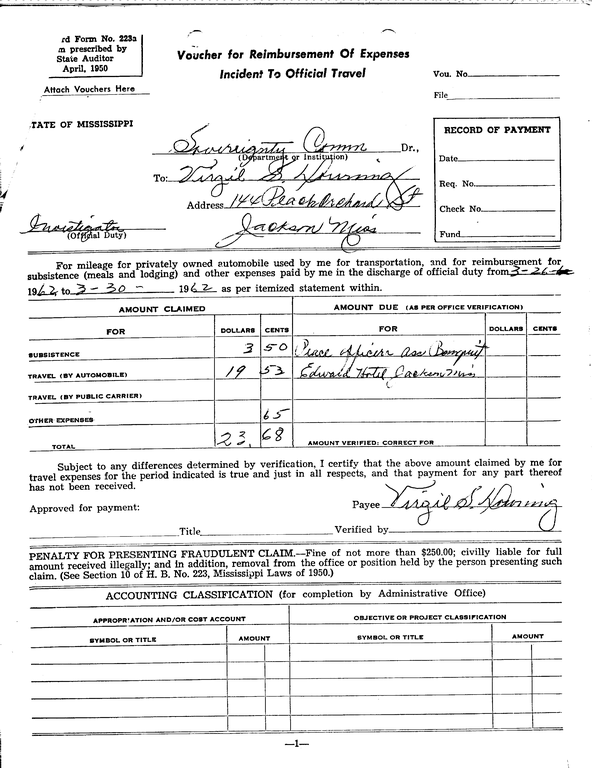 rd Form No. 223a
m prescribed by
State Auditor
April, 1950
Attach Vouchers Here
Voucher for Reimbursement Of Expenses
Incident To Official Travel
Vou. No.
File
TATE OF MISSISSIPPI
RECORD OF PAYMENT
Date
Req. No.
Check No.
Fund
Sovereignty Comm Dr.,
(Department or Institution)
To: Virgil S. Downing
Address 144 Peach Orchard St
Jackson Miss
Investigator
(Official Duty)
For mileage for privately owned automobile used by me for transportation, and for reimbursement for
subsistence (meals and lodging) and other expenses paid by me in the discharge of official duty from 3-26-
1962 to 3-30- 1962 as per itemized statement within.
AMOUNT CLAIMED
AMOUNT DUE (AS PER OFFICE VERIFICATION)
FOR DOLLARS CENTS FOR DOLLARS CENTS
SUBSISTENCE 3 50 Peace officers Ass Banquet
TRAVEL (BY AUTOMOBILE) 19 53 Edward Hotel, Jackson Miss
TRAVEL (BY PUBLIC CARRIER)
OTHER EXPENSES 65
TOTAL 23. 68 AMOUNT VERIFIED: CORRECT FOR
Subject to any differences determined by verification, I certify that the above amount claimed by me for
travel expenses for the period indicated is true and just in all respects, and that payment for any part thereof
has not been received.
Approved for payment:
Payee Virgil S. Downing
Title Verified by
PENALTY FOR PRESENTING FRAUDULENT CLAIM.—Fine of not more than $250.00; civilly liable for full
amount received illegally; and in addition, removal from the office or position held by the person presenting such
claim. (See Section 10 of H. B. No. 223, Mississippi Laws of 1950.)
ACCOUNTING CLASSIFICATION (for completion by Administrative Office)
APPROPRIATION AND/OR COST ACCOUNT
OBJECTIVE OR PROJECT CLASSIFICATION
SYMBOL OR TITLE AMOUNT SYMBOL OR TITLE AMOUNT
—1—